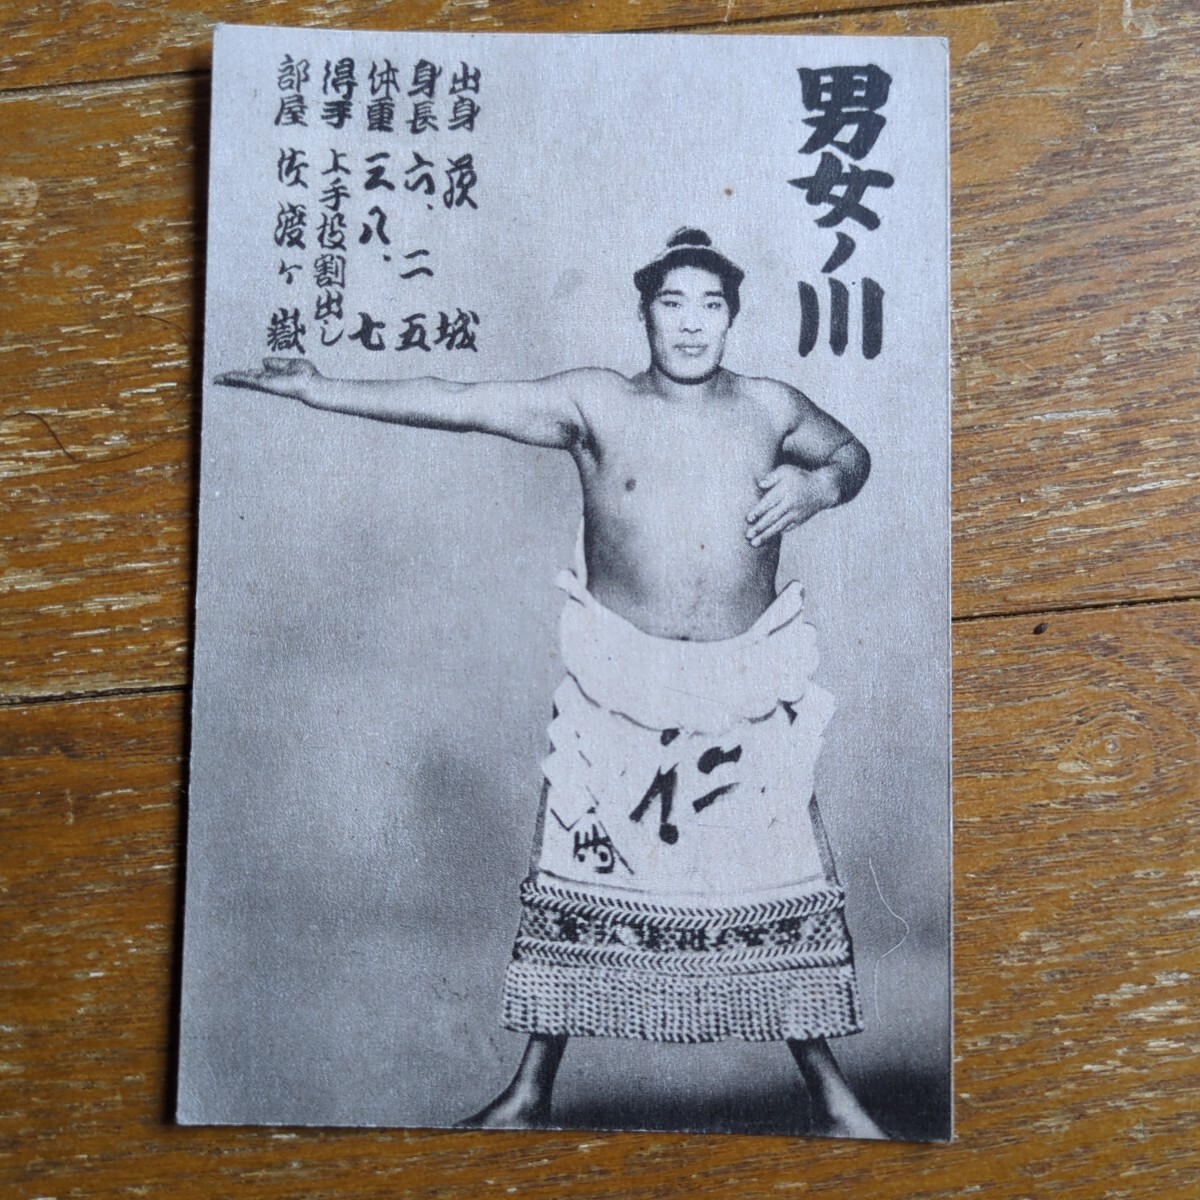 男女ノ川
出身 茨城
身長 六、二五
体重 三八、七
得手 上手投割出し
部屋 佐渡ヶ嶽
仁